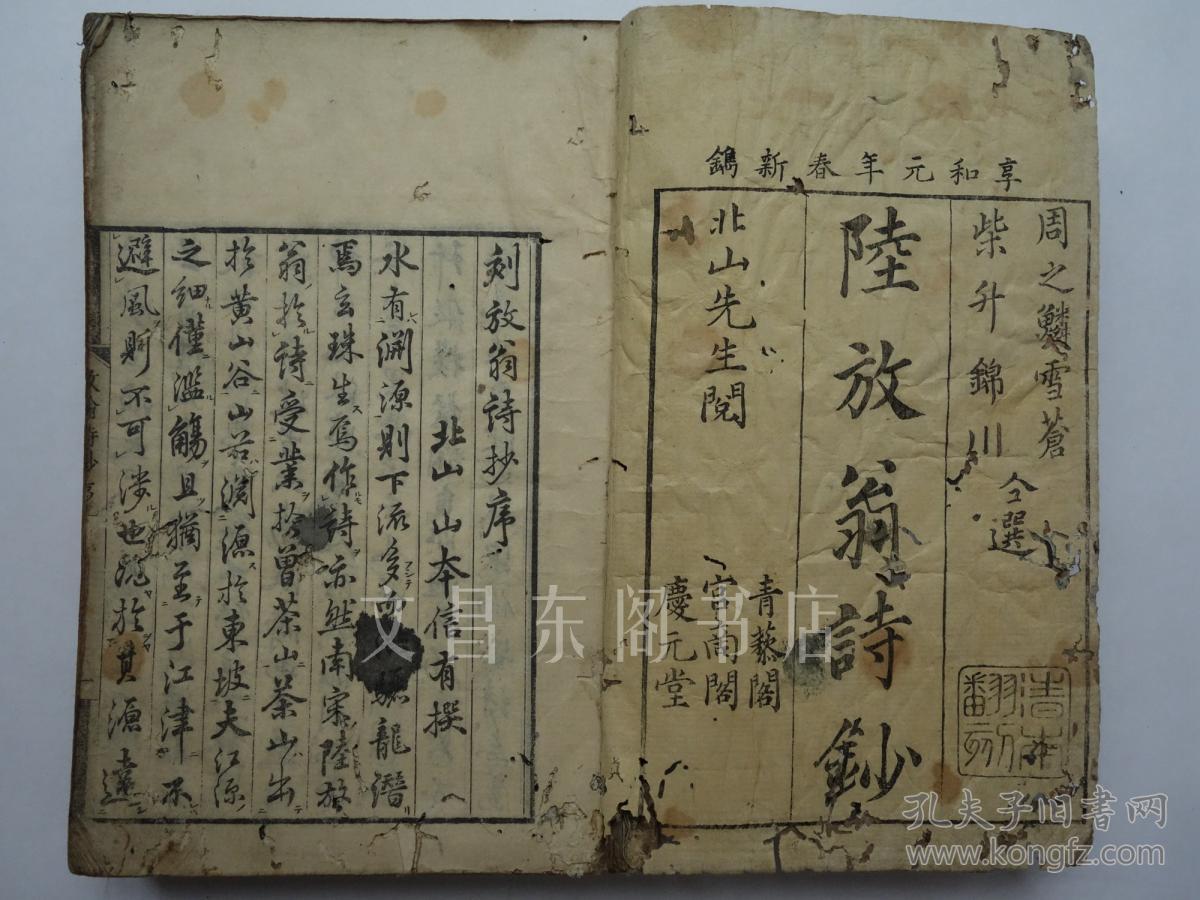 享和元年春新鐫
周之鱗雪蒼
柴升錦川 仝選
陸放翁詩鈔
北山先生閱
青藜閣
宮商閣
慶元堂
刻放翁詩抄序
北山 山本信有撰
水有淵源則下流多 驪龍潛
焉玄珠生焉作詩亦然南宋陸放
翁於詩受業於曾茶山茶山出
於黃山谷山谷淵源於東坡夫江源
之細僅濫觴且猶至于江津不
避風則不可涉也 於其源遠
文昌东阁书店
孔夫子旧书网
www.kongfz.com